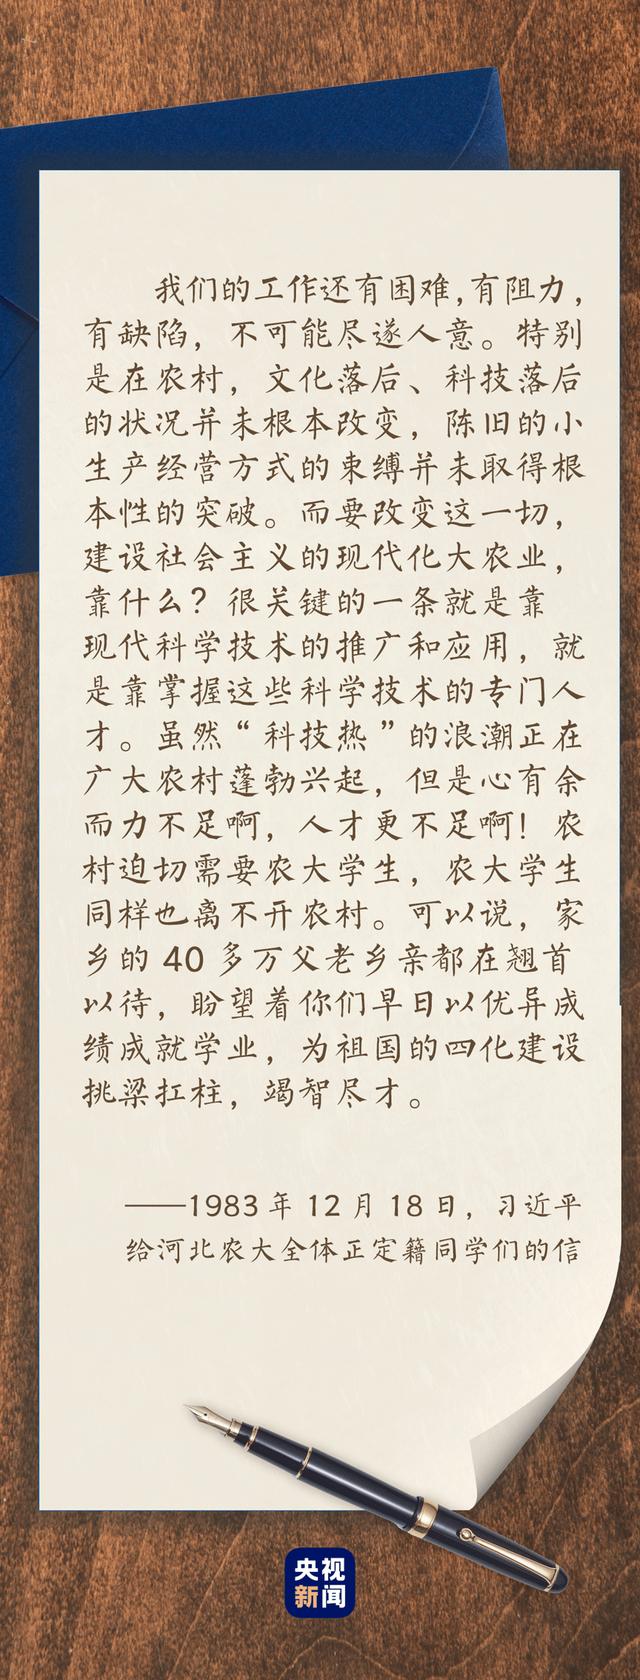 我们的工作还有困难,有阻力,
有缺陷，不可能尽遂人意。特别
是在农村，文化落后、科技落后
的状况并未根本改变，陈旧的小
生产经营方式的束缚并未取得根
本性的突破。而要改变这一切，
建设社会主义的现代化大农业，
靠什么？很关键的一条就是靠
现代科学技术的推广和应用，就
是靠掌握这些科学技术的专门人
才。虽然“科技热”的浪潮正在
广大农村蓬勃兴起，但是心有余
而力不足啊，人才更不足啊！农
村迫切需要农大学生，农大学生
同样也离不开农村。可以说，家
乡的 40 多万父老乡亲都在翘首
以待，盼望着你们早日以优异成
绩成就学业，为祖国的四化建设
挑梁扛柱，竭智尽才。
——1983 年 12 月 18 日，习近平
给河北农大全体正定籍同学们的信
央视
新闻